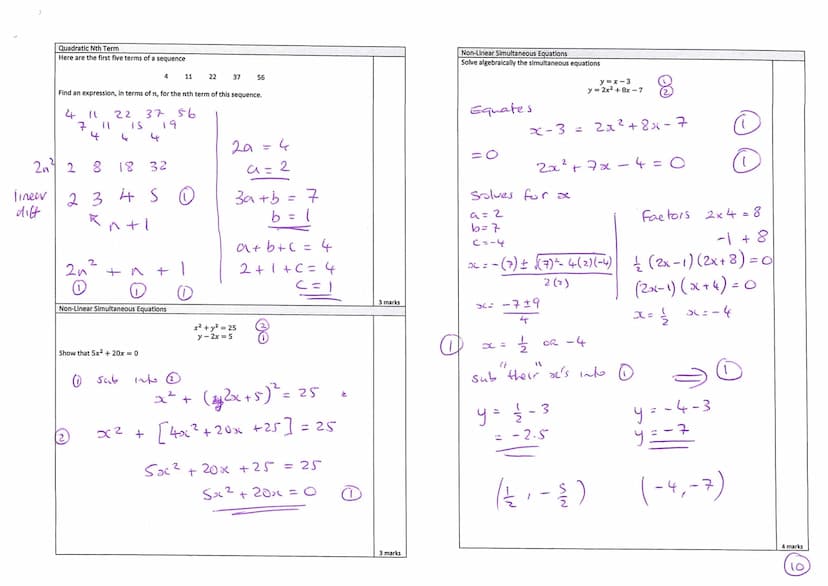 Quadratic Nth Term
Here are the first five terms of a sequence
4 11 22 37 56
Find an expression, in terms of n, for the nth term of this sequence.
4 11 22 37 56
7 11 15 19
4 4 4
2n² 2 8 18 32
linear diff 2 3 4 5 ①
n+1
2n² + n + 1
① ① ①
2a = 4
a = 2
3a+b = 7
b = 1
a+b+c = 4
2+1+c = 4
c = 1
3 marks
Non-Linear Simultaneous Equations
x² + y² = 25 ②
y – 2x = 5 ①
Show that 5x² + 20x = 0
① sub into ②
x² + (2x+5)² = 25
② x² + [4x² + 20x + 25] = 25
5x² + 20x + 25 = 25
5x² + 20x = 0 ①
3 marks
Non-Linear Simultaneous Equations
Solve algebraically the simultaneous equations
y = x – 3 ①
y = 2x² + 8x – 7 ②
Equates
x-3 = 2x²+8x-7 ①
=0
2x²+7x-4=0 ①
Solves for x
a=2
b=7
c=-4
x = -(7) ± √(7)²-4(2)(-4)
2(2)
x = -7±9
4
Factors 2x4=8
-1 + 8
½ (2x-1)(2x+8)=0
(2x-1)(x+4)=0
x=½ x=-4
① x = ½ or -4
sub "their" x's into ① ⇒ ①
y = ½ - 3
= -2.5
y = -4-3
y = -7
(½, -5/2) (-4, -7)
4 marks
10